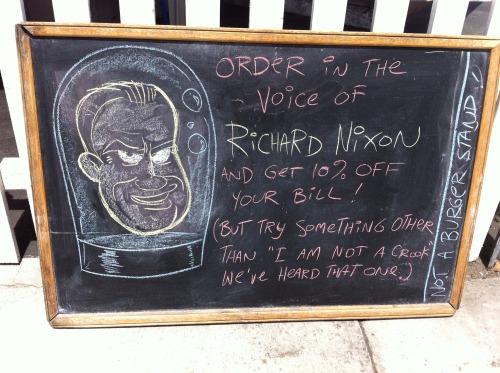 ORDER iN THE
VOiCE OF
RiCHARD NiXON
AND GET 10% OFF
YOUR BiLL!
(BUT TRY SOMETHiNG OTHER
THAN "I AM NOT A CROOK"
WE'VE HEARD THAT ONE.)
NOT A BURGER STAND!